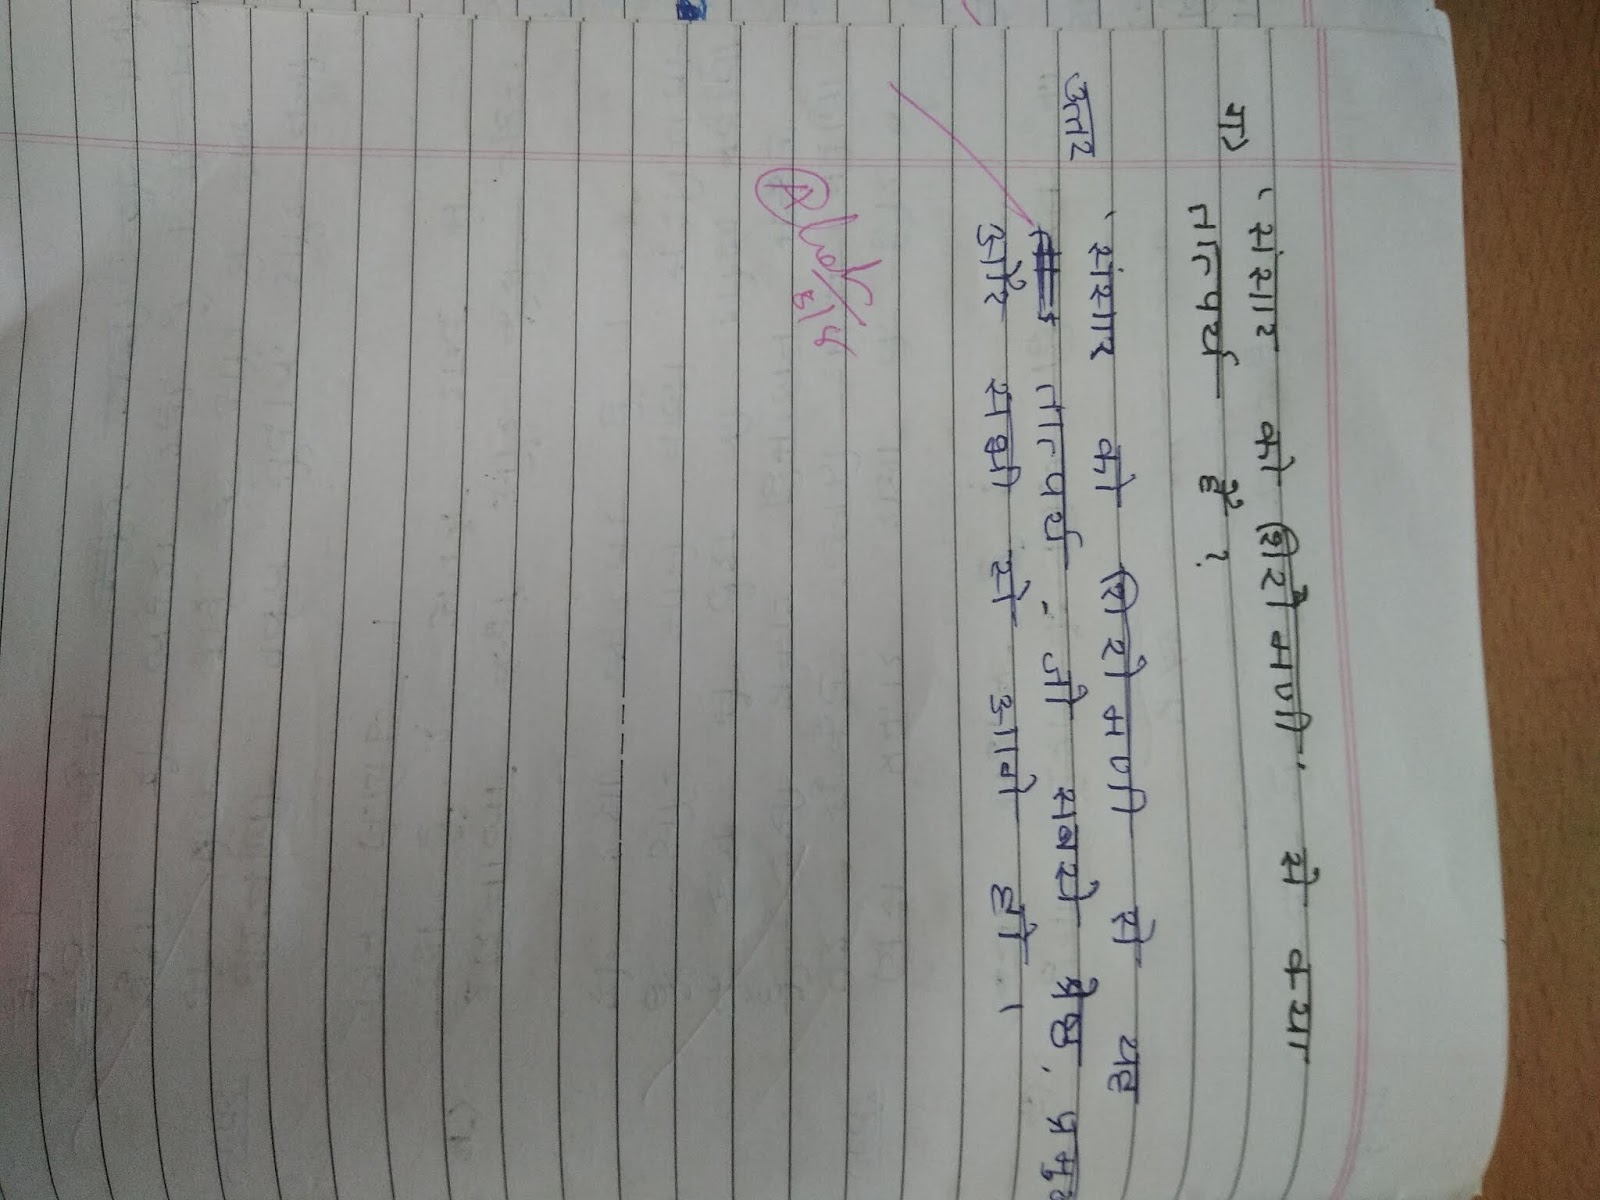 ग) 'संसार को शिरोमणी' से क्या
तात्पर्य है ?
उत्तर 'संसार को शिरोमणी से यह
तात्पर्य - जो सबसे श्रेष्ठ, प्रमुख
और सभी से आगे हो ।